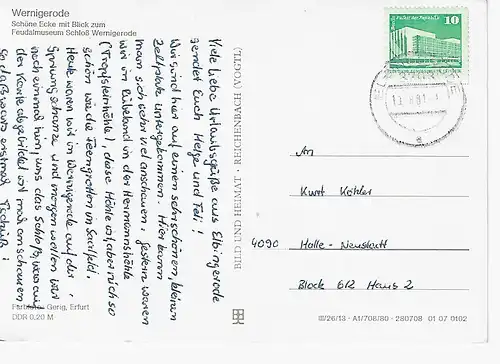 Wernigerode
Schöne Ecke mit Blick zum
Feudalmuseum Schloß Wernigerode
Viele liebe Urlaubsgrüße aus Elbingerode
sendet Euch Helga und Fati!
Wir sind hier auf einem sehr schönen, kleinen
Zeltplatz untergekommen. Hier kann
man sich sehr viel anschauen. Gestern waren
wir in Rübeland in der Hermannshöhle
(Tropfsteinhöhle), diese Höhle ist aber nicht so
schön wie die Feengrotten in Saalfeld.
Heute waren wir in Wernigerode auf der
Sprungschanze und morgen wollen wir
noch einmal hin, uns das Schloß, was auf
der Karte abgebildet ist mal anschauen.
So das wars erstmal Tschüß!
Farbfoto: Gerig, Erfurt
DDR 0,20 M
BILD UND HEIMAT · REICHENBACH (VOGTL)
10
An
Kurt Köhler
4090 Halle-Neustadt
Block 612 Haus 2
III/26/13 - A1/708/80 - 280708 01 07 0102